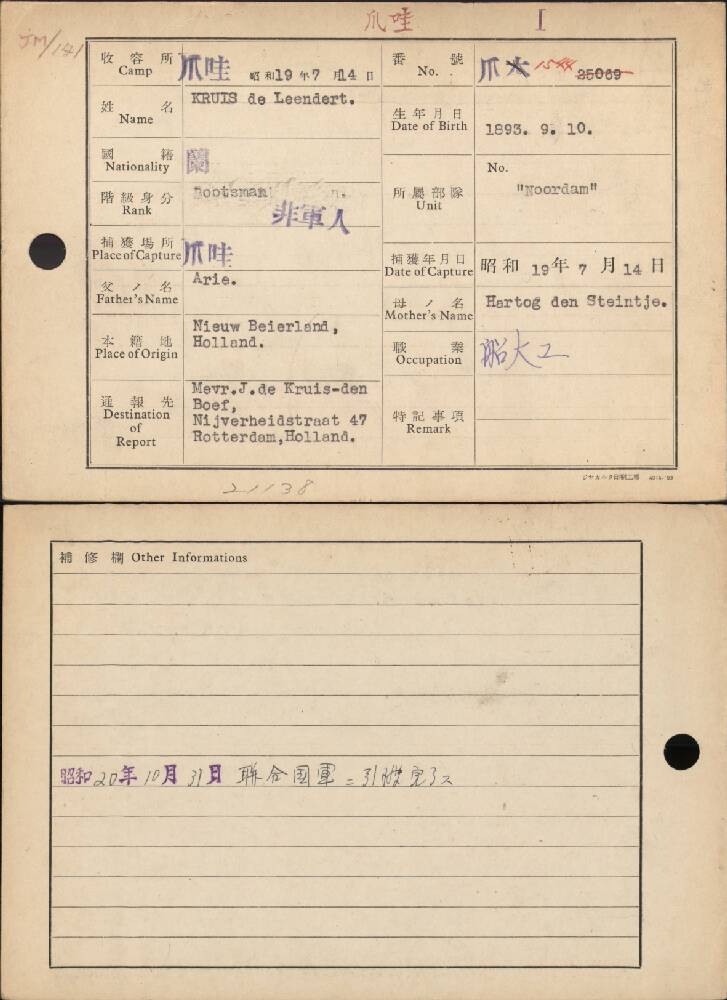 爪哇 I
JM/141
收容所 Camp 爪哇 昭和19年7月14日
番號 No. 爪 25069
姓名 Name KRUIS de Leendert.
生年月日 Date of Birth 1893. 9. 10.
國籍 Nationality 蘭
階級身分 Rank Bootsman n.
非軍人
所屬部隊 Unit No. "Noordam"
捕獲場所 Place of Capture 爪哇
捕獲年月日 Date of Capture 昭和 19年 7月14日
父ノ名 Father's Name Arie.
母ノ名 Mother's Name Hartog den Steintje.
本籍地 Place of Origin Nieuw Beierland,
Holland.
職業 Occupation 船大工
通報先 Destination of Report Mevr.J.de Kruis-den
Boef,
Nijverheidstraat 47
Rotterdam,Holland.
特記事項 Remark
21138
ジヤカルタ印刷工場
補修欄 Other Informations
昭和20年10月31日 聯合国軍ニ引渡完了ス